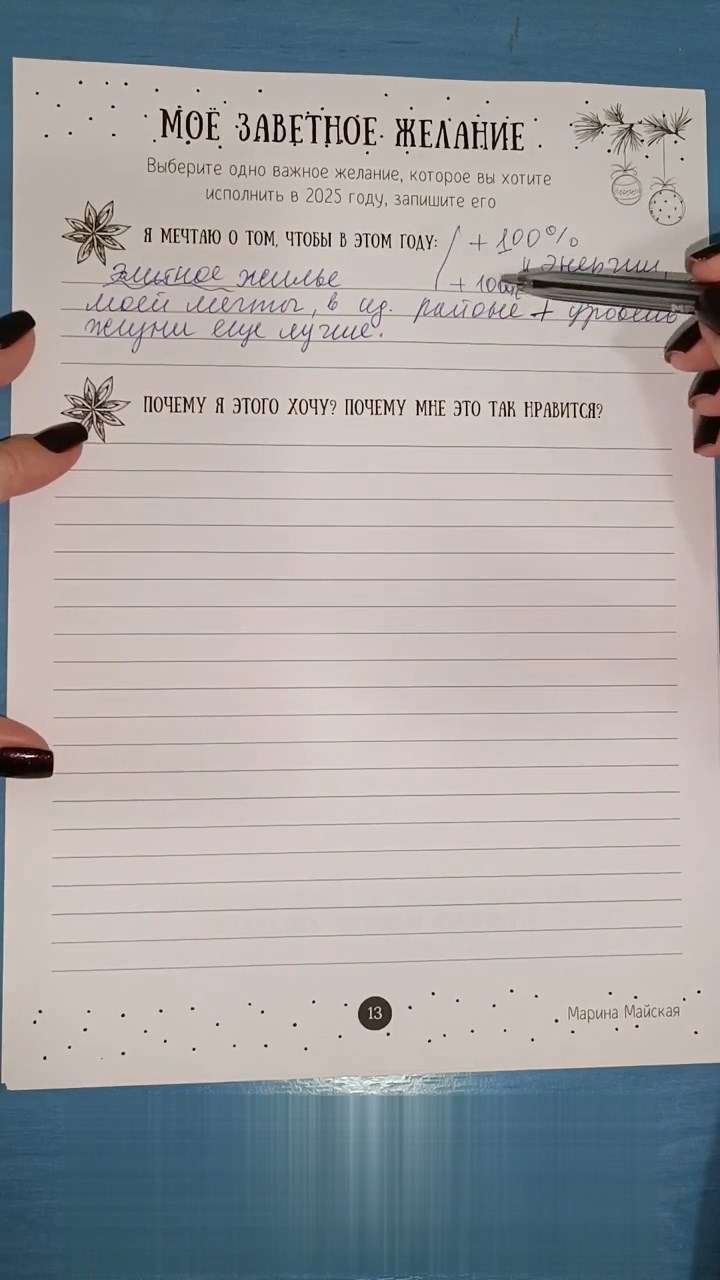 МОЁ ЗАВЕТНОЕ ЖЕЛАНИЕ
Выберите одно важное желание, которое вы хотите
исполнить в 2025 году, запишите его
Я МЕЧТАЮ О ТОМ, ЧТОБЫ В ЭТОМ ГОДУ:
+ 100%
и энергии,
+ 100
Элитное жилье
моей мечты, в ид. районе + уровень
жизни еще лучше.
ПОЧЕМУ Я ЭТОГО ХОЧУ? ПОЧЕМУ МНЕ ЭТО ТАК НРАВИТСЯ?
13
Марина Майская